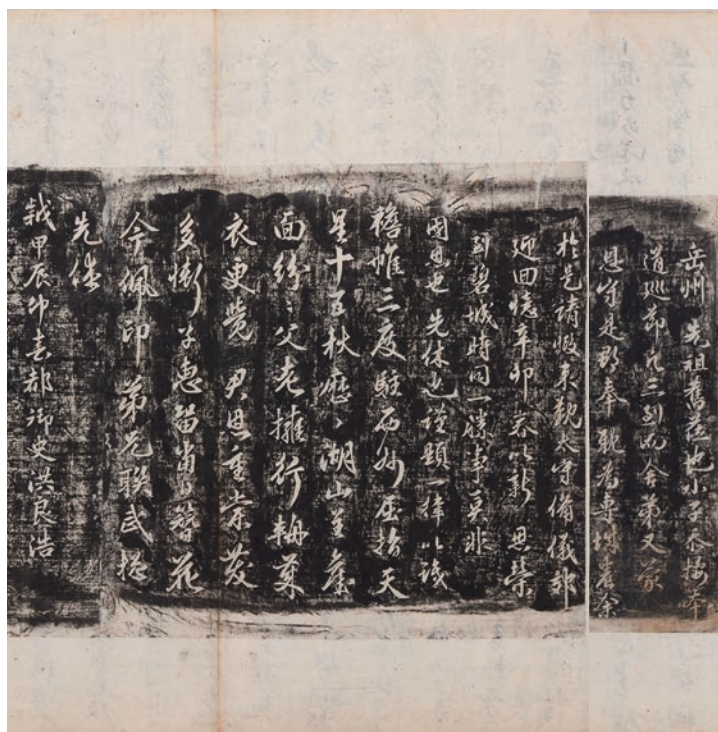 岳州 先祖舊莅也小子忝按本
道巡節凡三到而舍弟又蒙
恩守是郡奉 親為專城養余
於是請暇来 覲太守備儀郊
迎回憶辛卯 春以新 恩榮
到碧城時同一勝事莫非
國恩也 先休也謹題一律以識
襜帷三度駐西州屈指天
星十五秋歷〻湖山呈舊
面紛〻父老擁行輈萊
衣更覺 君恩重棠茇
多慚子惠留當日簪花
今佩印 弟兄聯武
先休
越甲辰仲春都御史洪良浩